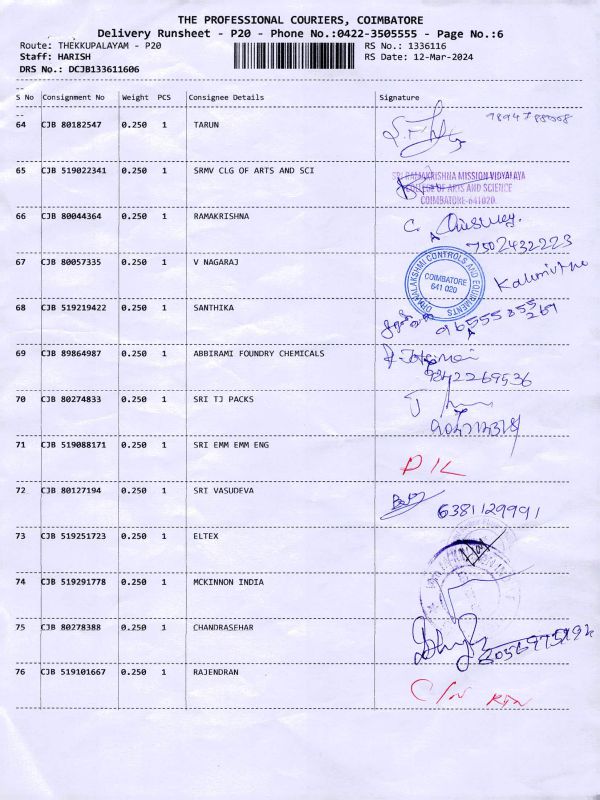 THE PROFESSIONAL COURIERS, COIMBATORE
Delivery Runsheet - P20 - Phone No.:0422-3505555 - Page No.:6
Route: THEKKUPALAYAM - P20 RS No.: 1336116
Staff: HARISH RS Date: 12-Mar-2024
DRS No.: DCJB133611606
S No Consignment No Weight PCS Consignee Details Signature
64 CJB 80182547 0.250 1 TARUN
65 CJB 519022341 0.250 1 SRMV CLG OF ARTS AND SCI
SRI RAMAKRISHNA MISSION VIDYALAYA
COLLEGE OF ARTS AND SCIENCE
COIMBATORE-641020.
66 CJB 80044364 0.250 1 RAMAKRISHNA
7502432223
67 CJB 80057335 0.250 1 V NAGARAJ
COIMBATORE
641 020
68 CJB 519219422 0.250 1 SANTHIKA
69 CJB 89864987 0.250 1 ABBIRAMI FOUNDRY CHEMICALS
9842269536
70 CJB 80274833 0.250 1 SRI TJ PACKS
71 CJB 519088171 0.250 1 SRI EMM EMM ENG D/L
72 CJB 80127194 0.250 1 SRI VASUDEVA 6381129991
73 CJB 519251723 0.250 1 ELTEX
74 CJB 519291778 0.250 1 MCKINNON INDIA
75 CJB 80278388 0.250 1 CHANDRASEHAR
76 CJB 519101667 0.250 1 RAJENDRAN